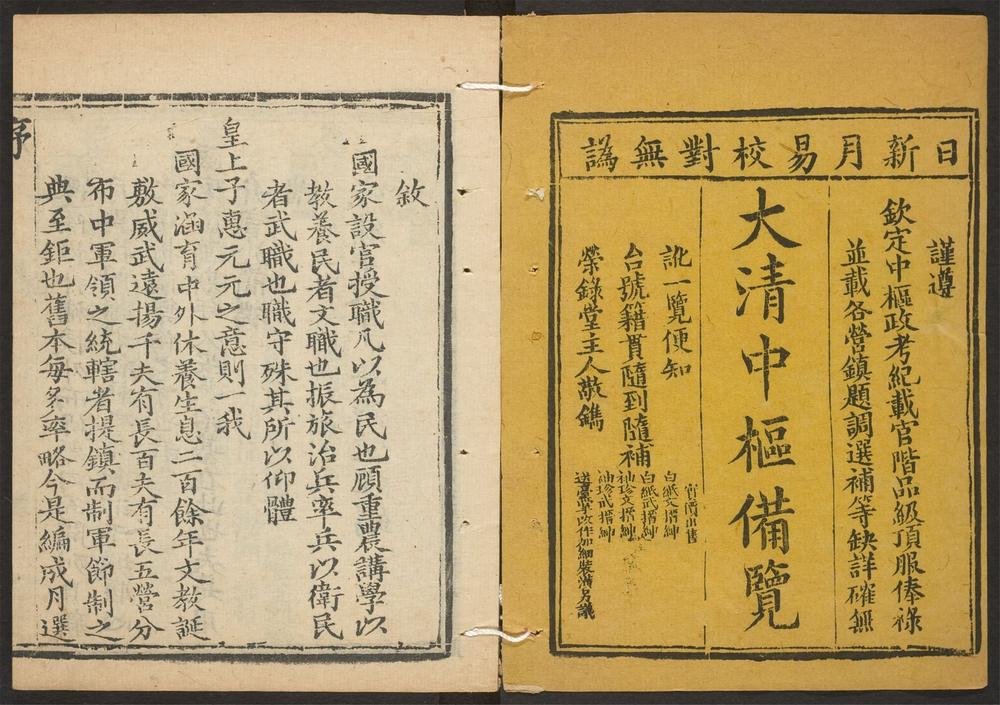 日新月易校對無譌
謹遵
欽定中樞政考紀載官階品級頂服俸祿
並載各營鎮題調選補等缺詳確無
大清中樞備覽
訛一覽便知
台號籍貫隨到隨補
榮錄堂主人敬鐫
實價出售
白紙文搢紳
白紙武搢紳
袖珍文搢紳
袖珍武搢紳
改作加細裝潢另議
敘
國家設官授職凡以為民也顧重農講學以
教養民者文職也振旅治兵率兵以衛民
者武職也職守殊其所以仰體
皇上子惠元元之意則一我
國家涵育中外休養生息二百餘年文教誕
敷威武遠揚千夫有長百夫有長五營分
布中軍領之統轄者提鎮而制軍節制之
典至鉅也舊本每多率略今是編成月選
序